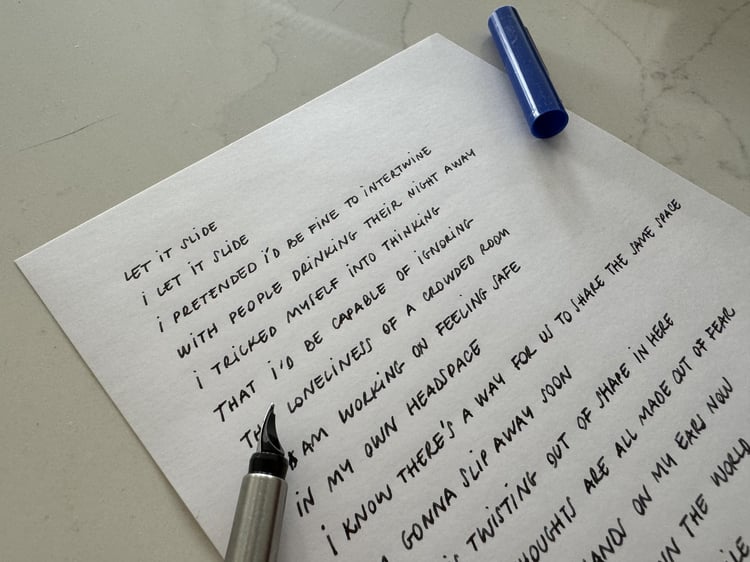 LET IT SLIDE
i LET IT SLIDE
i PRETENDED i'D BE FINE TO INTERTWINE
WITH PEOPLE DRINKING THEIR NIGHT AWAY
i TRICKED MYSELF INTO THINKING
THAT i'D BE CAPABLE OF IGNORING
LONELINESS OF A CROWDED ROOM
AM WORKING ON FEELING SAFE
IN MY OWN HEADSPACE
i KNOW THERE'S A WAY FOR US TO SHARE THE SAME SPACE
GONNA SLIP AWAY SOON
TWISTING OUT OF SHAPE IN HERE
ARE ALL MADE OUT OF FEAR
ON MY EARS NOW
THE WORLD